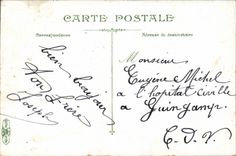 CARTE POSTALE
Correspondance
Adresse du destinataire
bien bonjour
ton frère
Joseph
Monsieur
Eugène Michel
a l'hopital civille
a Guingamp.
C. D. N